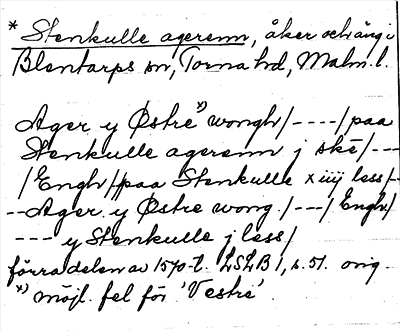 * Stenkulle agerenn, åker och äng i
Blentarps sn, Torna hd, Malm. l.
Ager y Østre *) wongh/----/paa
Stenkulle agerenn j skē/---
/Engh/paa Stenkulle x iiij less/-
--Ager y Østre wong./---/Engh/
--- y Stenkulle j less/
förra delen av 1570-t. LSLB 1, s. 51. orig.
*) möjl. fel för 'Vestre'.